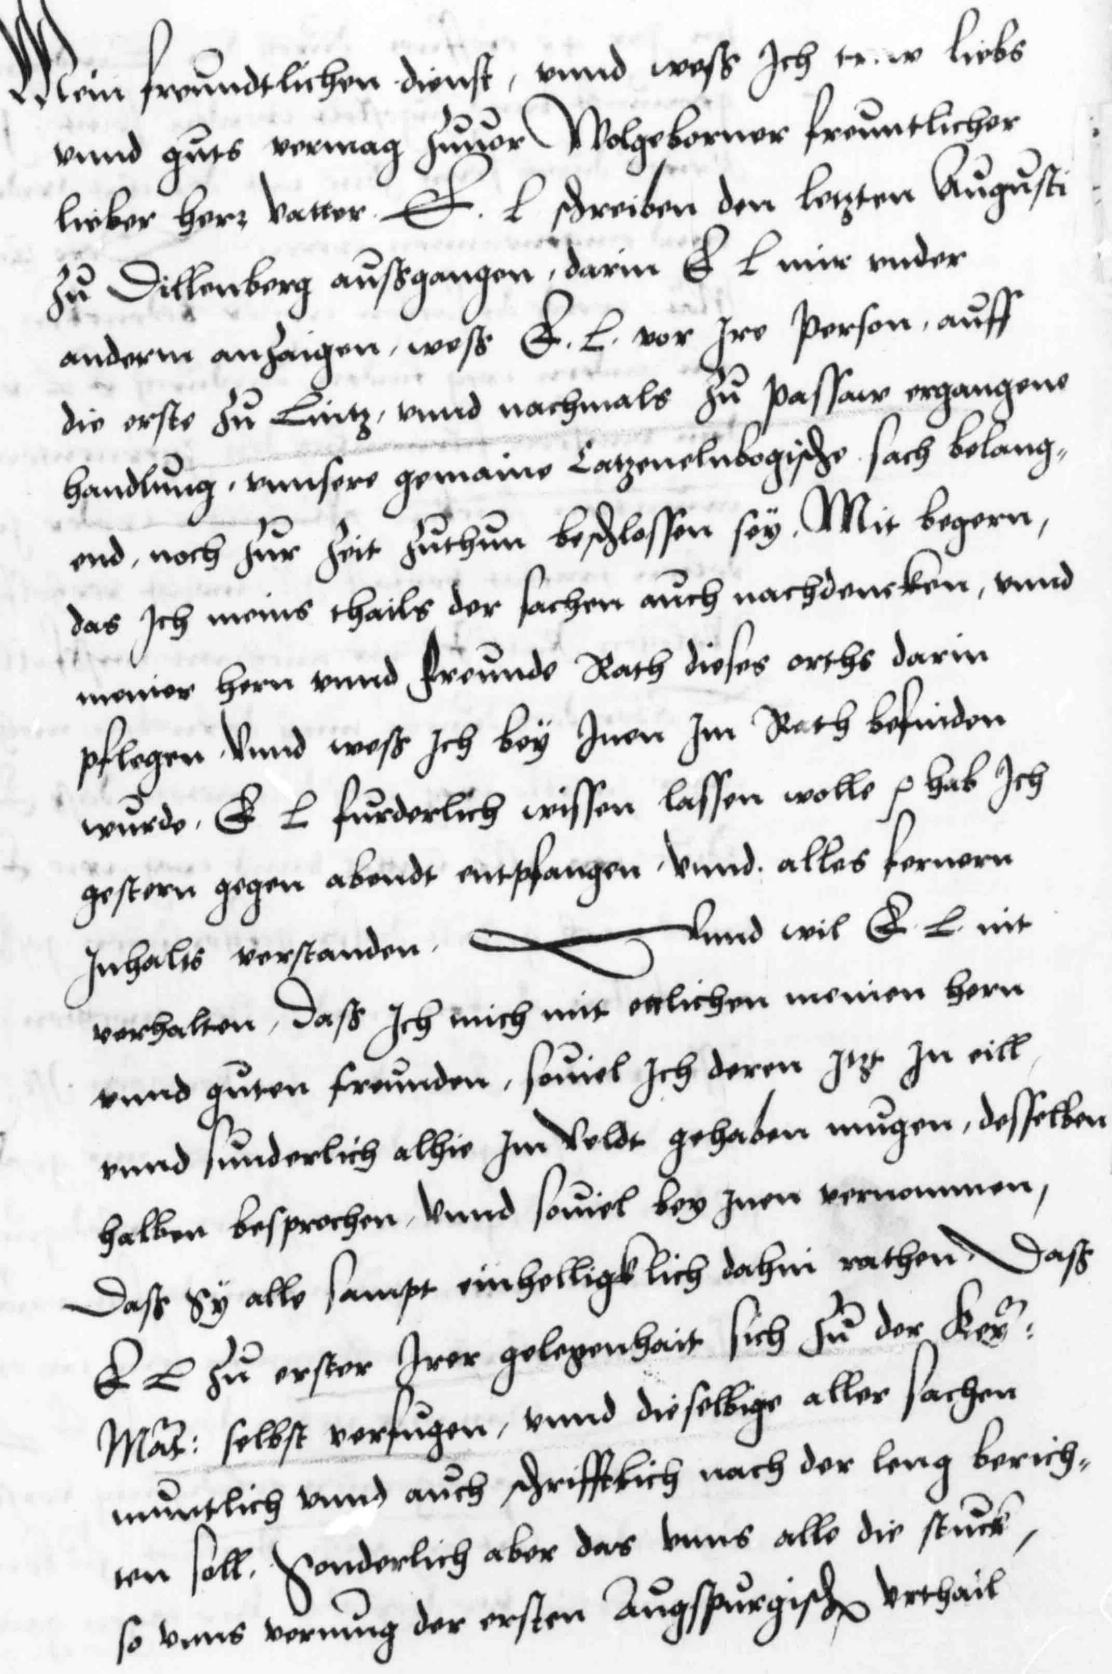 Mein freundtlichen dienst, vnnd wess Ich trew liebs
vnnd guts vermag zuuor Wolgeborner freuntlicher
lieber herr Vatter. E. L schreiben den letzten Augusti
zu Dillenberg aussgangen, darin E L mir vnder
anderm anzaigen, wess E. L. vor Ire Person, auff
die erste zu Lintz, vnnd nachmals zu Passaw ergangene
handlung, vnnsere gemaine Catzenelnbogische sach belang-
end, noch zur zeit zuthun beschlossen seÿ. Mit begern,
das Ich meins thails der sachen auch nachdencken, vnnd
meiner hern vnnd freunde Rath dieses orths darin
pflegen, Vnnd wess Ich beÿ Inen Im Rath befinden
wurde, E L furderlich wissen lassen wolle hab Ich
gestern gegen abendt entpfangen, Vnnd alles fernern
Inhalts verstanden. Vnnd wil E. L. nit
verhalten, Dass Ich mich mit ettlichen meinen hern
vnnd guten freunden, souiel Ich deren Itzt In eill,
vnnd sunderlich alhie Im Veldt gehaben mugen, desselben
halben besprochen, Vnnd souiel bey Inen vernommen,
Dass Sÿ alle sampt einhelligklich dahin rathen, Dass
E L zu erster Irer gelegenhait sich zu der Keÿ:
Mat: selbst verfugen, vnnd dieselbige aller sachen
muntlich vnnd auch schrifftlich nach der leng berich-
ten soll. Sonderlich aber das vnns alle die stuck,
so vnns vermug der ersten Augspurgischen Vrthail